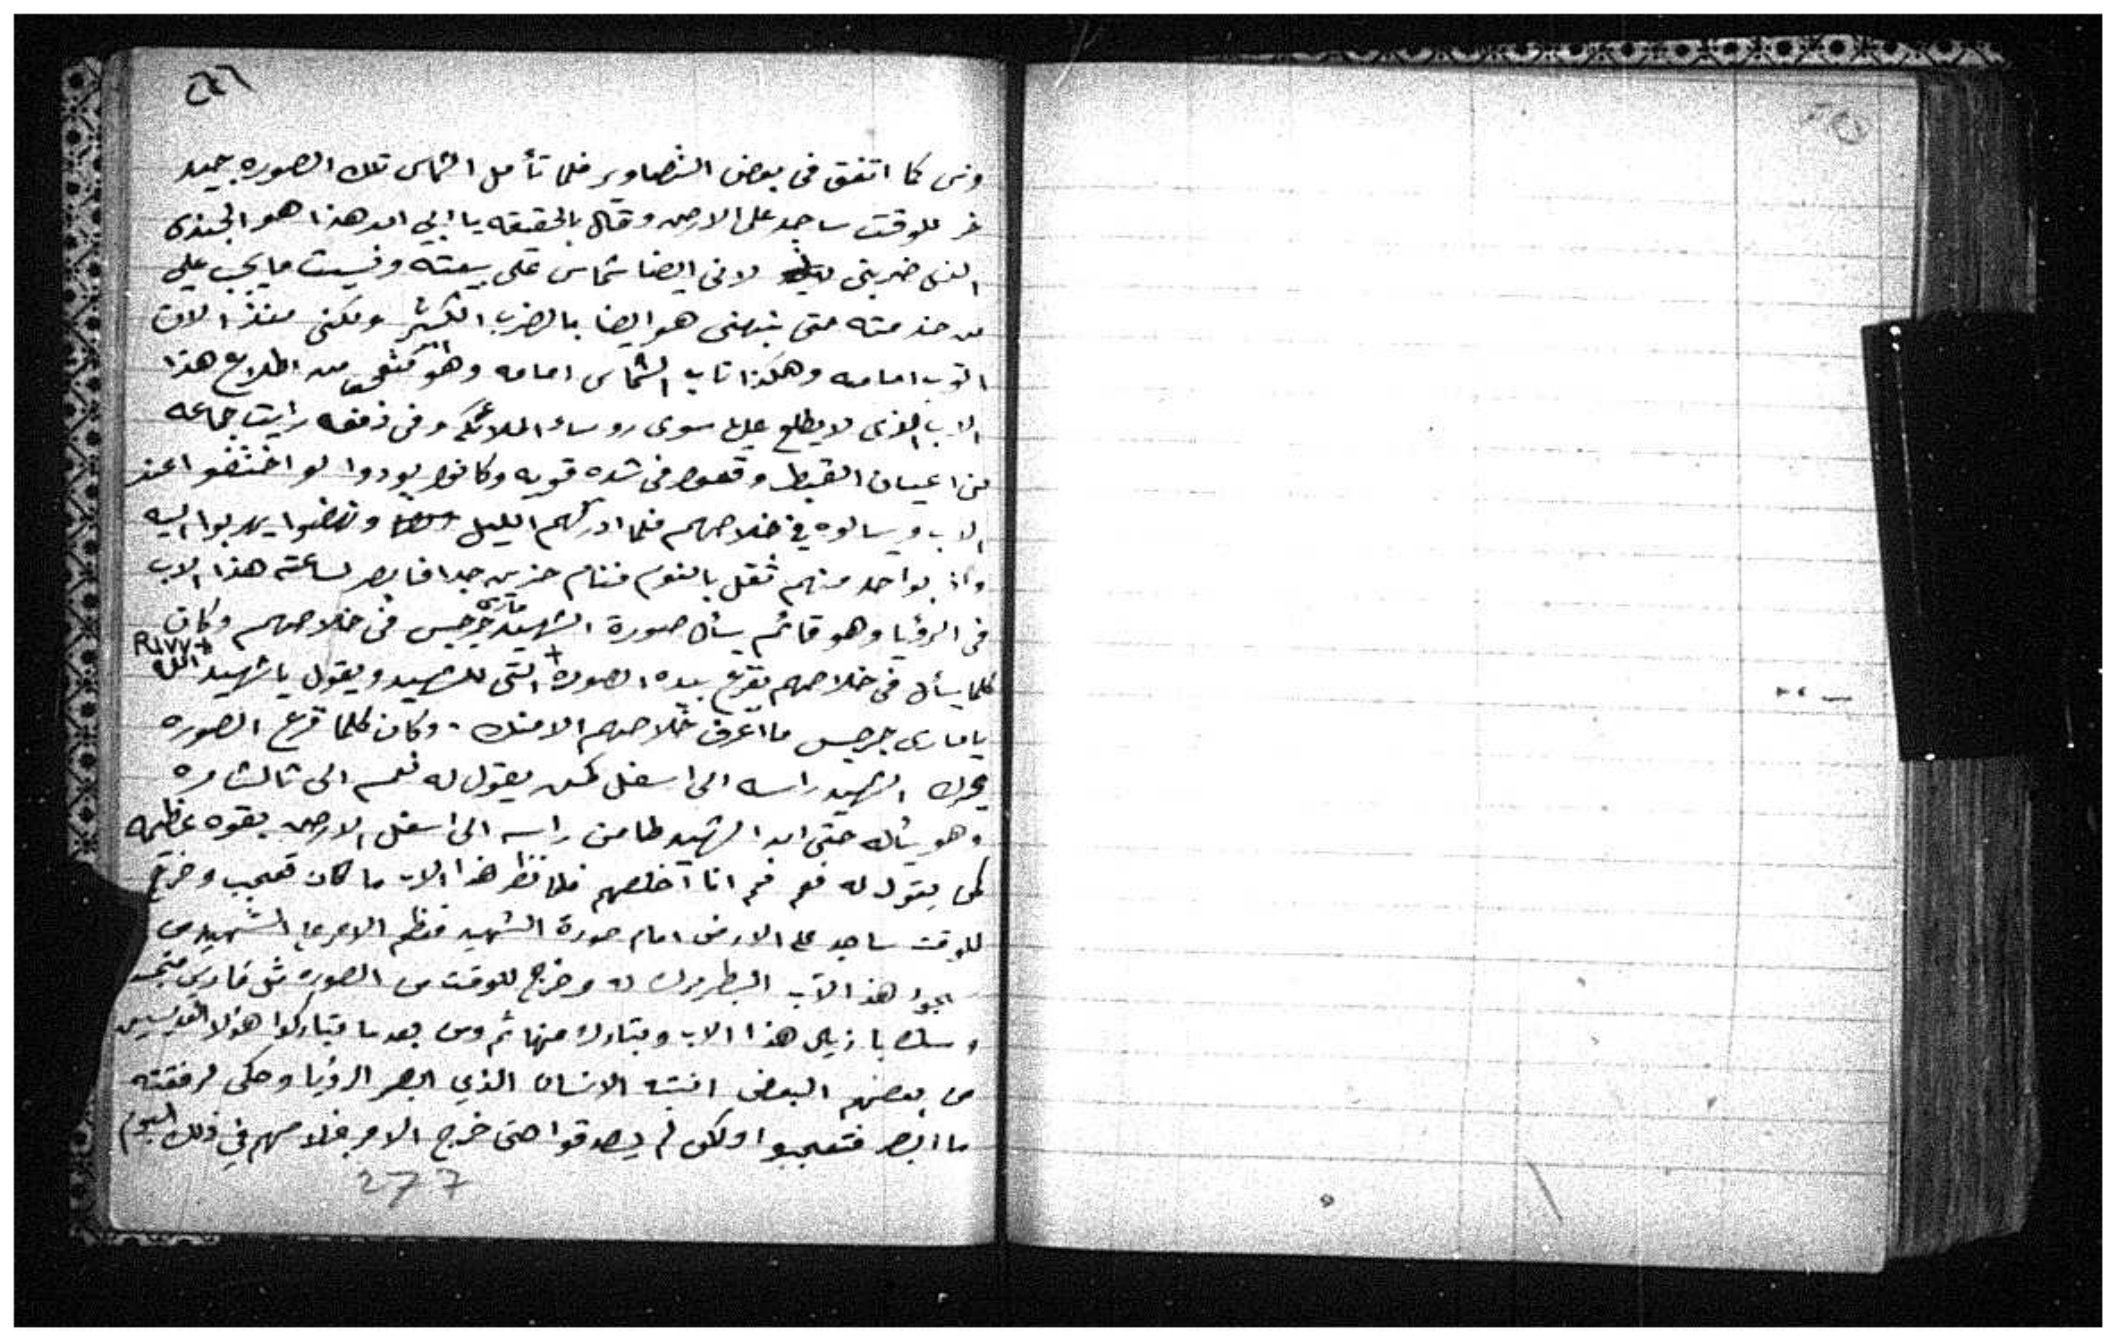 كما اتفق فى بعض التصاوير فلما تأمل الشماس تلك الصوره جيد
خر للوقت ساجد على الارض وقال بالحقيقه يا ابي ان هذا هو الجندى
الذى ضربنى لانى ايضا شماس على بيعته ونسيت ما يجب على
من خدمته حتى ينبهنى هو ايضا بالضرب الكثير ولكنى منذ الان
اتوب امامه وهكذا تاب الشماس امامه وهو من اطلاع هذا
الاب الذى لا يطلع عليه سوى روساء الملائكه وفى دفعه رايت جماعه
من اعيان القبط وقعوا فى شده قويه وكانوا يودوا لو اختفوا عند
الاب ويسالوه في خلاصهم فلما ادركهم الليل ونهضوا يهربوا اليه
واذا بواحد منهم ثقل بالنوم فنام حزين جدا فابصر لساعته هذا الاب
فى الرؤيا وهو قائم يسأل صورة الشهيد مارى جرجس فى خلاصهم وكان
كلما يسأل فى خلاصهم يقرع بيده الصوره التى للشهيد ويقول يا شهيد الله
يا مارى جرجس ما اعرف خلاصهم الا منك - وكان كلما قرع الصوره
يحرك الشهيد راسه الى اسفل كمن يقول له نعم الى ثالث مره
وهو يسأله حتى ان الشهيد طامن راسه الى اسفل الارض بقوه عظيمه
كمن يقول له نعم نعم انا اخلصهم فلما نظر هذا الاب ما كان تعجب وخر
للوقت ساجد على الارض امام صورة الشهيد فعظم الامر على الشهيد من
هذا الاب البطرك له وخرج للوقت من الصوره مثل فارس
ومسك باذيال هذا الاب وتبارك منها ثم ومن بعد ما تباركوا هؤلا القديسين
من بعضهم البعض انتبه الانسان الذي ابصر الرؤيا وحكى لرفقته
ما ابصر فتعجبوا ولكن لم يصدقوا حتى خرج الامر بخلاصهم في ذلك اليوم
277